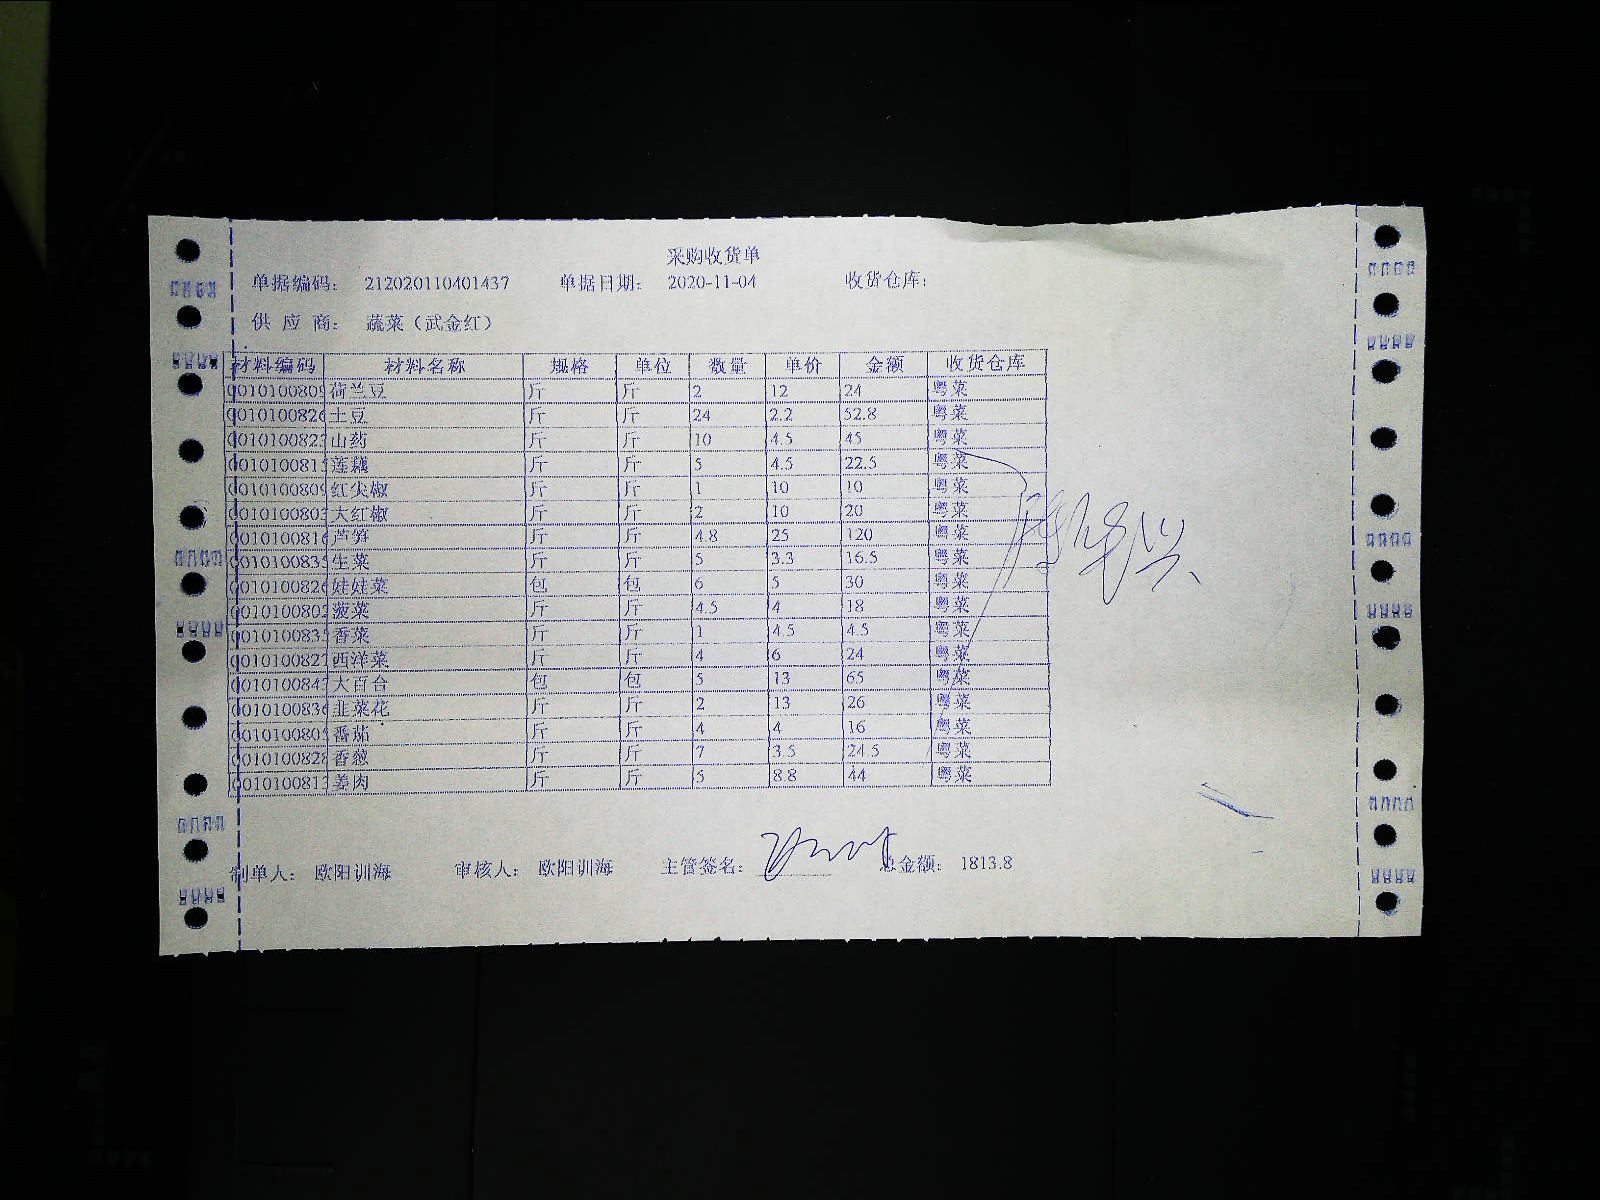 采购收货单
单据编码： 212020110401437 单据日期： 2020-11-04 收货仓库：
供 应 商： 蔬菜（武金红）
材料编码 材料名称 规格 单位 数量 单价 金额 收货仓库
0010100809 荷兰豆 斤 斤 2 12 24 粤菜
0010100826 土豆 斤 斤 24 2.2 52.8 粤菜
001010082 山药 斤 斤 10 4.5 45 粤菜
001010081 莲藕 斤 斤 5 4.5 22.5 粤菜
0010100809 红尖椒 斤 斤 1 10 10 粤菜
001010080 大红椒 斤 斤 2 10 20 粤菜
0010100816 芦笋 斤 斤 4.8 25 120 粤菜
001010083 生菜 斤 斤 5 3.3 16.5 粤菜
0010100826 娃娃菜 包 包 6 5 30 粤菜
001010080 菠菜 斤 斤 4.5 4 18 粤菜
001010083 香菜 斤 斤 1 4.5 4.5 粤菜
001010082 西洋菜 斤 斤 4 6 24 粤菜
001010084 大百合 包 包 5 13 65 粤菜
0010100836 韭菜花 斤 斤 2 13 26 粤菜
001010080 番茄 斤 斤 4 4 16 粤菜
0010100828 香葱 斤 斤 7 3.5 24.5 粤菜
001010081 姜肉 斤 斤 5 8.8 44 粤菜
制单人： 欧阳训海 审核人： 欧阳训海 主管签名： 总金额： 1813.8